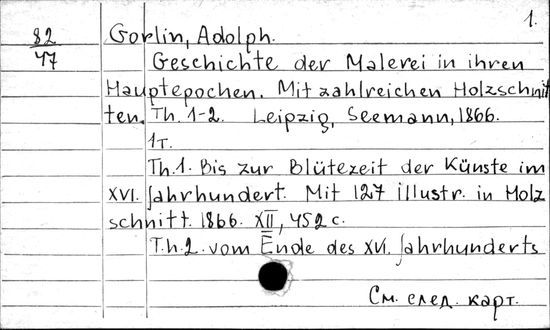 1.
82
47
Gorlin, Adolph.
Geschichte der Malerei in ihren
Hauptepochen. Mit zahlreichen Holzschnit
ten. Th. 1-2. Leipzig, Seemann, 1866.
1т.
Th.1. Bis zur Blütezeit der Künste im
XVI. Jahrhundert. Mit 127 illustr. in Holz
schnitt. 1866. XII, 452 с.
T.h.2. vom Ende des XVI. Jahrhunderts
См. след. карт.